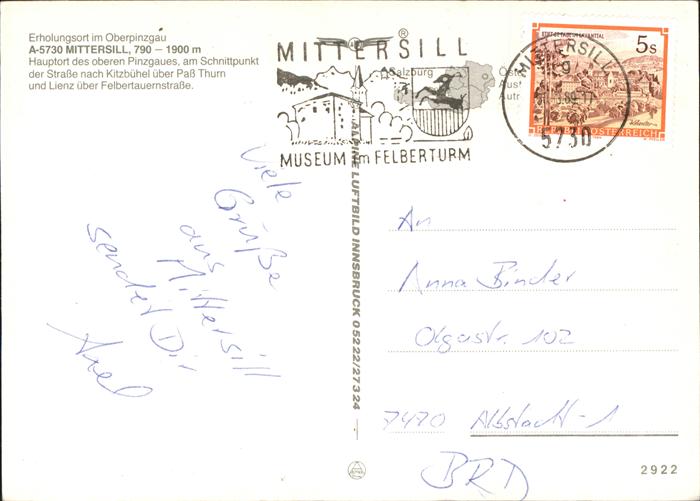 Erholungsort im Oberpinzgau
A-5730 MITTERSILL, 790 – 1900 m
Hauptort des oberen Pinzgaues, am Schnittpunkt
der Straße nach Kitzbühel über Paß Thurn
und Lienz über Felbertauernstraße.
MITTERSILL
®
Salzburg
MUSEUM im FELBERTURM
MITTERSILL
5730
STIFT ST. PAUL IM LAVANTTAL
5s
REPUBLIK ÖSTERREICH
ALPINE LUFTBILD INNSBRUCK 05222/27324
Viele
Grüße
aus
Mittersill
sendet Dir
Axel
An
Anna Binder
Olgastr. 102
7470 Albstadt-1
BRD
2922